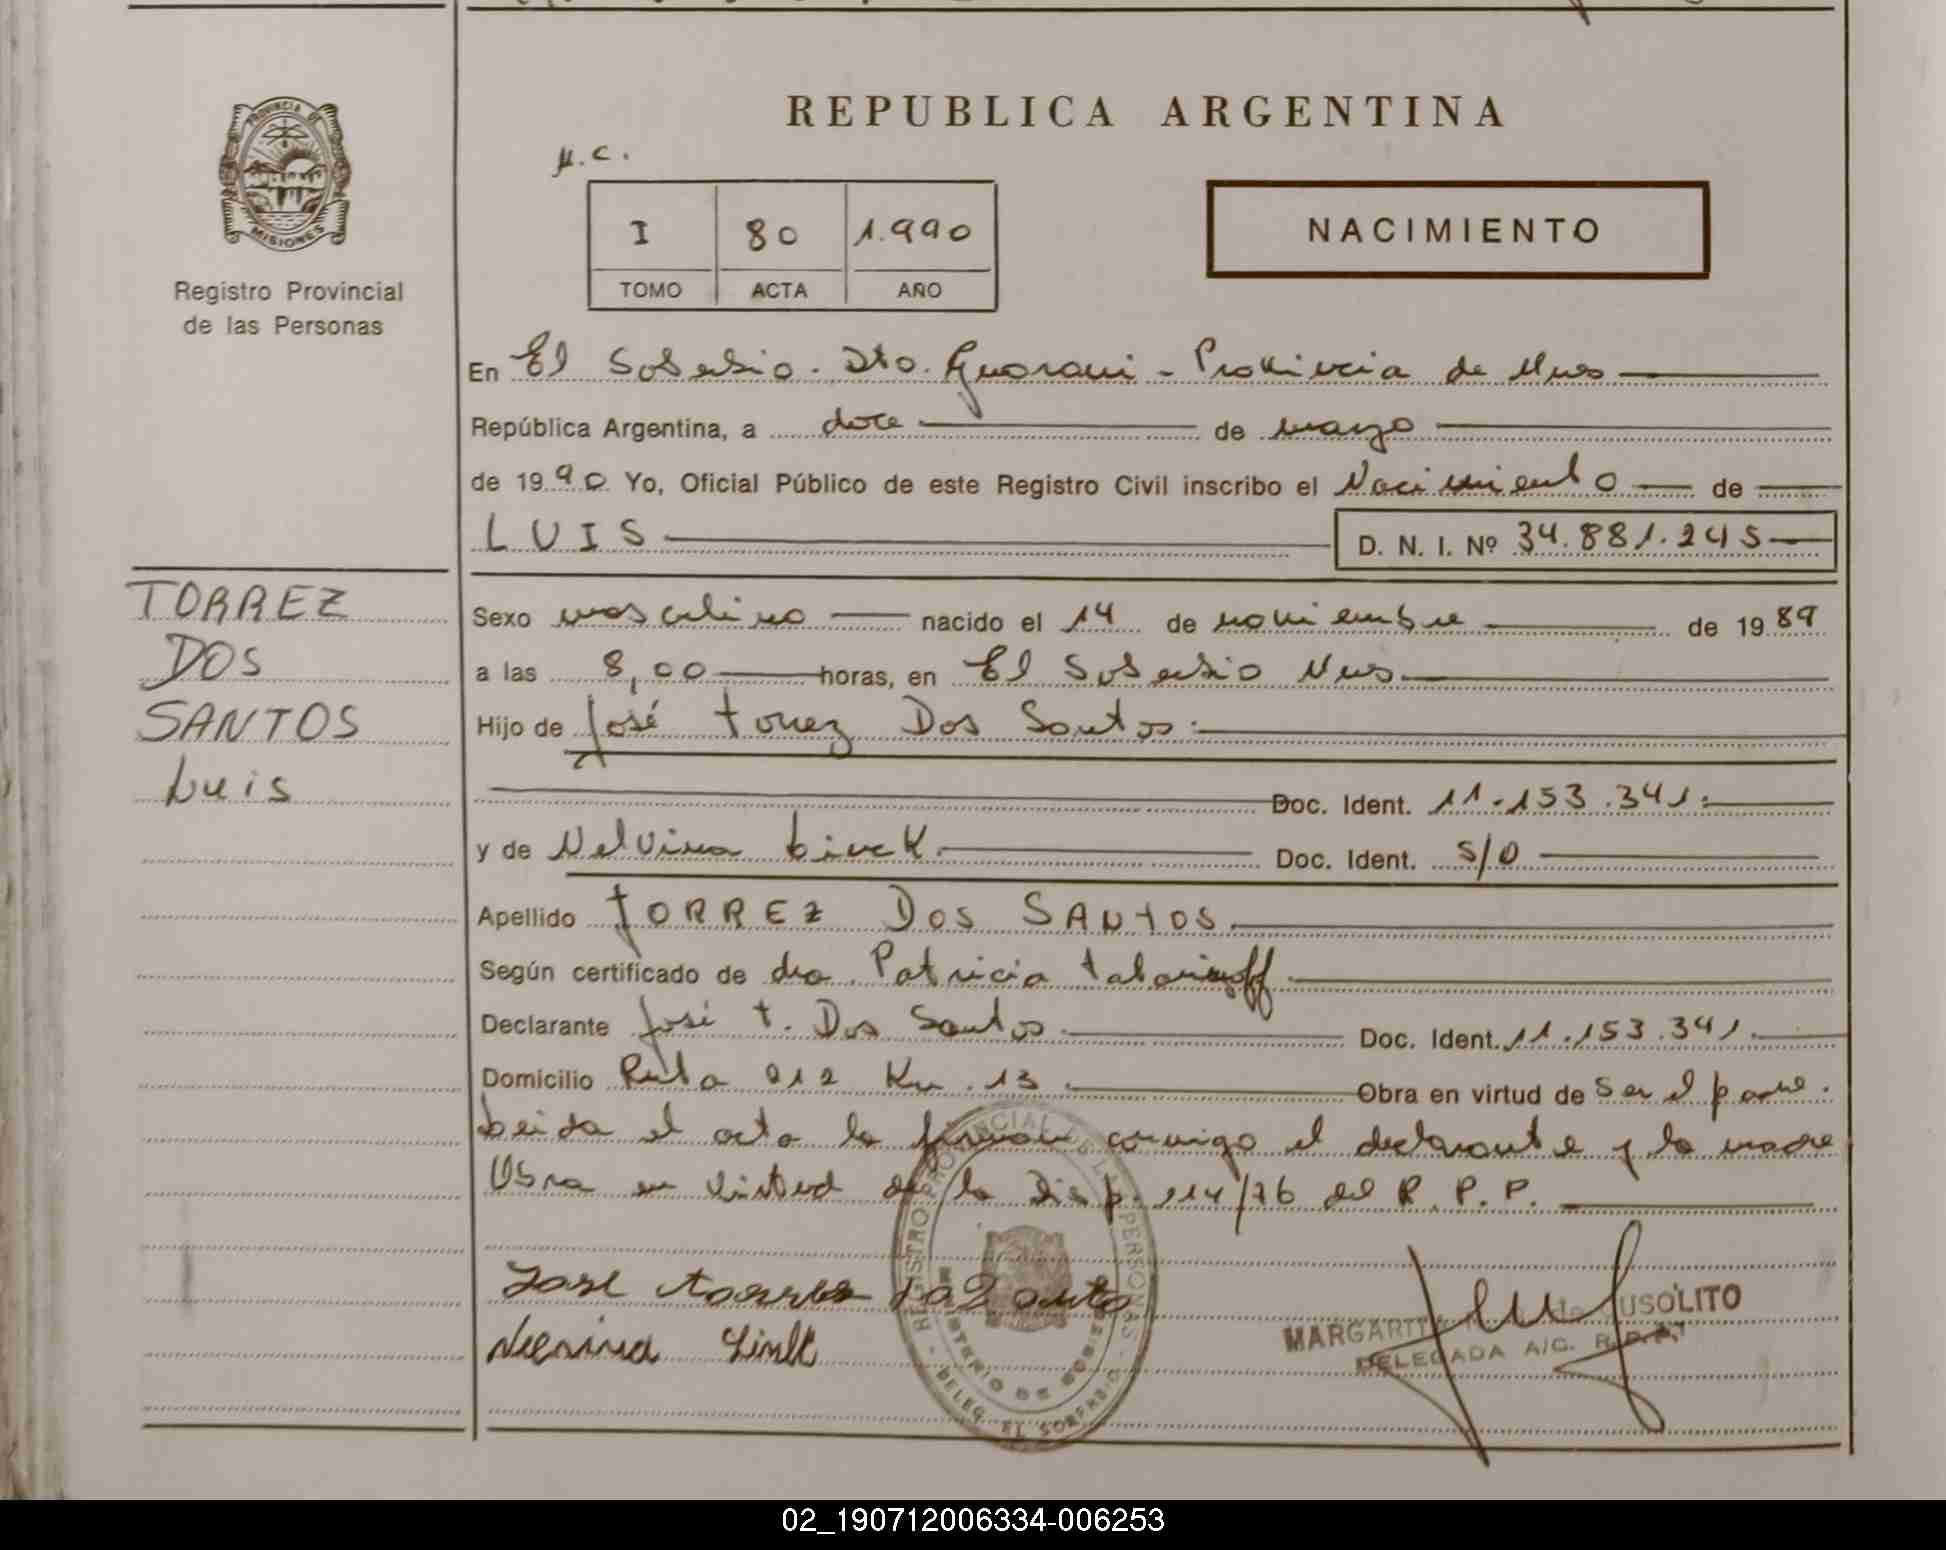 PROVINCIA DE
MISIONES
Registro Provincial
de las Personas
TORREZ
DOS
SANTOS
Luis
REPUBLICA ARGENTINA
M.C.
I 80 1.990
TOMO ACTA AÑO
NACIMIENTO
En El Soberbio. Dto. Guarani - Provincia de Mnes
República Argentina, a doce de marzo
de 1990 Yo, Oficial Público de este Registro Civil inscribo el Nacimiento de
LUIS D. N. I. Nº 34.881.245
Sexo masculino nacido el 14 de noviembre de 1989
a las 8,00 horas, en El Soberbio Mnes
Hijo de José Torrez Dos Santos
Doc. Ident. 11.153.341.
y de Nelvina Linck Doc. Ident. S/D
Apellido TORREZ DOS SANTOS
Según certificado de dra. Patricia
Declarante José T. Dos Santos Doc. Ident. 11.153.341.
Domicilio Ruta 212 Km. 13 Obra en virtud de Ser el padre.
Leida el acta la firman conmigo el declarante y la madre
Obra en virtud de la Disp. 114/76 del R.P.P.
REGISTRO PROVINCIAL DE LAS PERSONAS
MINISTERIO DE GOBIERNO
DELEG. EL SOBERBIO
Jose
Linck
MARGARITA de CUSOLITO
DELEGADA A/C. R.P.P.
02_190712006334-006253